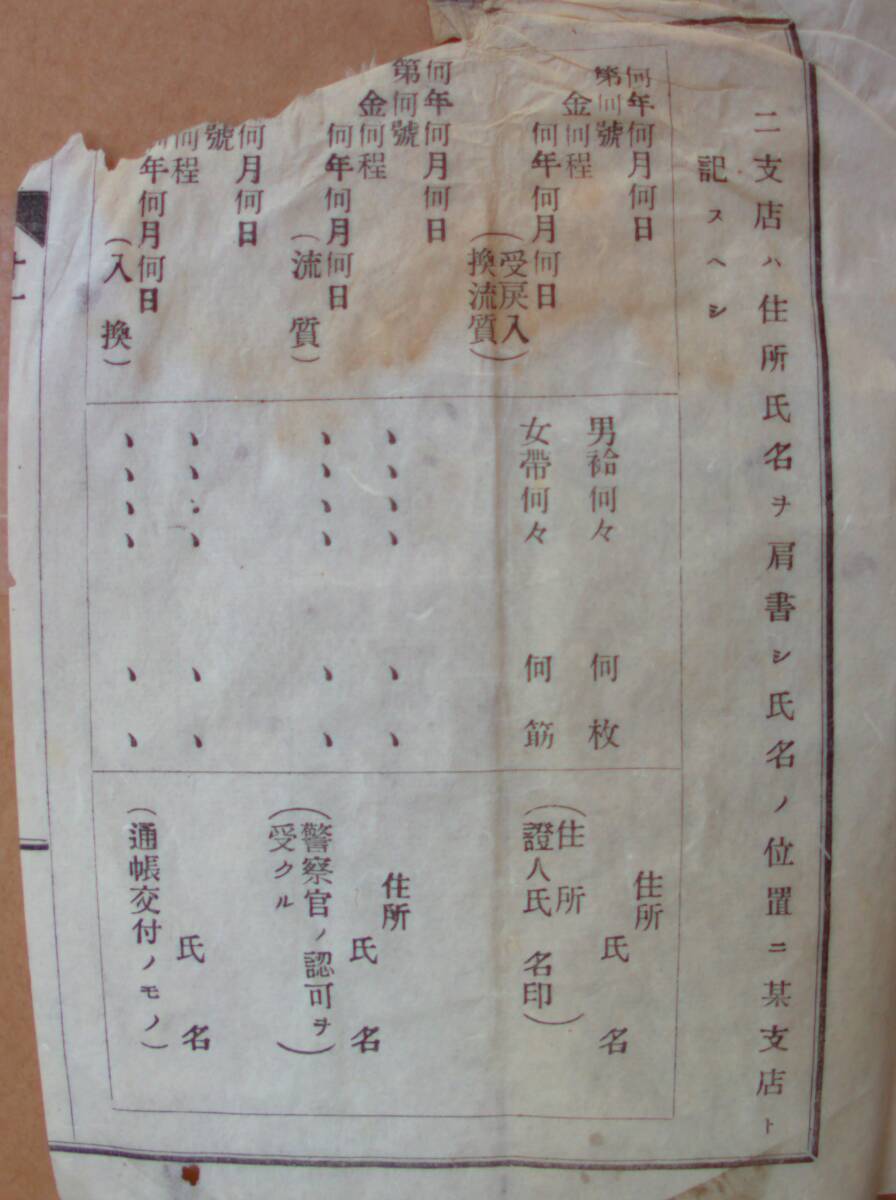 二支店ハ住所氏名ヲ肩書シ氏名ノ位置ニ某支店ト
記スヘシ
何年何月何日
第何號
金何程
何年何月何日
(受戻入
換流質)
男袷何々 何枚
女帶何々 何筋
住所
氏名
(住所
證人氏名印)
何年何月何日
第何號
金何程
何年何月何日
(流質)
、、、、 、 、
、、、、 、 、
住所
氏名
(警察官ノ認可ヲ
受クル)
何月何日
號
何程
年何月何日
(入換)
、、、、 、 、
、、、、 、 、
氏名
(通帳交付ノモノ)
十一